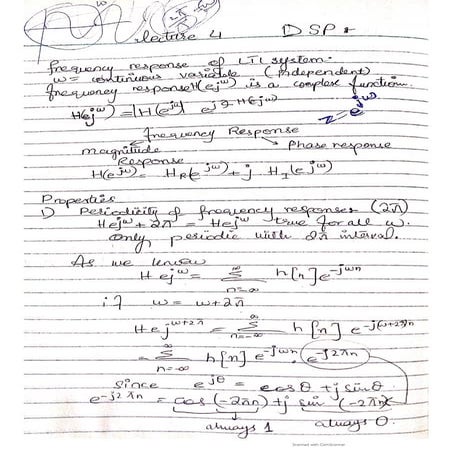 Lecture 4 DSP
frequency response of LTI system.
ω = continuous variable (independent)
frequency response H(e^jω) is a complex function.
H(e^jω) = |H(e^jω)| e^j∠H(e^jω)
z = e^jω
frequency Response
magnitude Phase response
Response
H(e^jω) = H_R(e^jω) + j H_I(e^jω)
Properties
1) Periodicity of frequency responses (2π)
He^jω+2π = He^jω true for all ω.
only periodic with 2π interval.
As we know
He^jω = ∞Σn=-∞ h[n]e^-jωn
if ω = ω+2π
He^jω+2π = ∞Σn=-∞ h[n] e^-j(ω+2π)n
= ∞Σn=-∞ h[n] e^-jωn . e^-j2πn
since e^jθ = cosθ + j sinθ.
e^-j2πn = cos(-2πn) + j sin(-2πn)
always 1 always 0.
Scanned with CamScanner